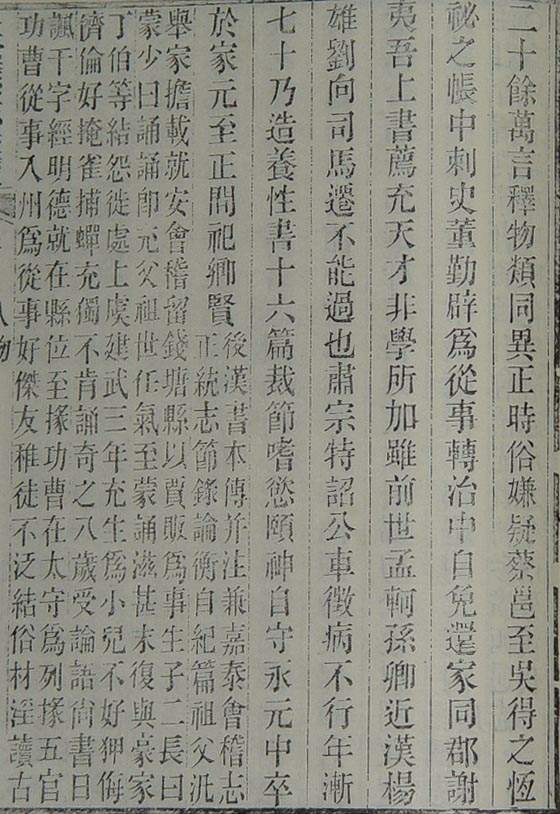 二十餘萬言釋物類同異正時俗嫌疑蔡邕至吳得之恆
祕之帳中刺史董勤辟爲從事轉治中自免還家同郡謝
夷吾上書薦充天才非學所加雖前世孟軻孫卿近漢楊
雄劉向司馬遷不能過也肅宗特詔公車徵病不行年漸
七十乃造養性書十六篇裁節嗜慾頤神自守永元中卒
於家元至正間祀鄉賢
後漢書本傳并注兼嘉泰會稽志
正統志節錄論衡自紀篇祖父汎
舉家擔載就安會稽留錢塘縣以賈販爲事生子二長曰
蒙少曰誦誦卽充父祖世任氣至蒙誦滋甚末復與豪家
丁伯等結怨徙處上虞建武三年充生爲小兒不好狎侮
儕倫好掩雀捕蟬充獨不肯誦奇之八歲受論語尚書日
諷千字經明德就在縣位至掾功曹在太守爲列掾五官
功曹從事入州爲從事好傑友稚徒不泛結俗材淫讀古